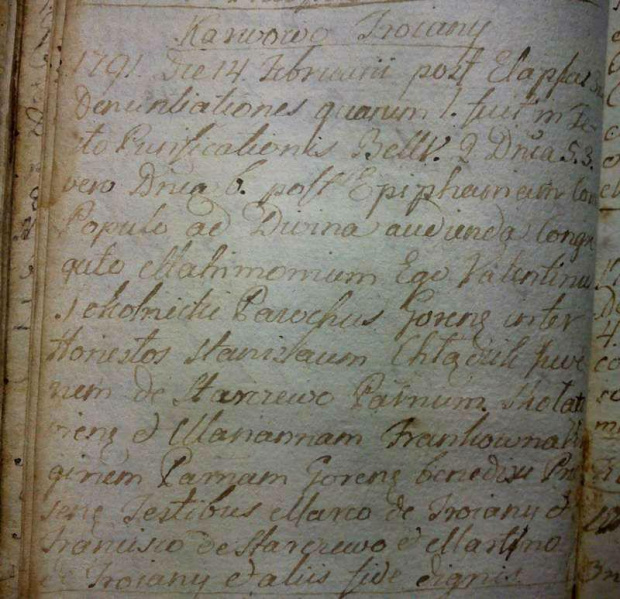 Karwowo Troiany
1791. Die 14 Februarii post Elapsas
Denuntiationes quarum 1. fuit in Fe-
sto Purificationis 2 Dnica 5. 3.
vero Dnica 6. post Epiphaniam Co
Populo ad Divina audienda Congr
gato Matrimonium Ego Valentinus
Sokolnicki Parochus Goreng inter
Honestos Stanislaum Juve
nem de Starzewo
et Mariannam Frankowna Vi
ginem Parnam Goreng benedixi Pre
seng Testibus Marco de Troiany et
Francisco de Starczewo et Martino
de Troiany et aliis fide dignis.